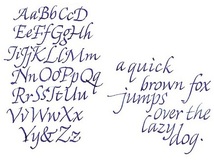 AaBbCcD
EeFfGgHh
IiJjKkLlMm
NnOoPpQq
RrSsTtUu
VvWwXx
Yy&Zz
a quick
brown fox
jumps
over the
lazy
dog.